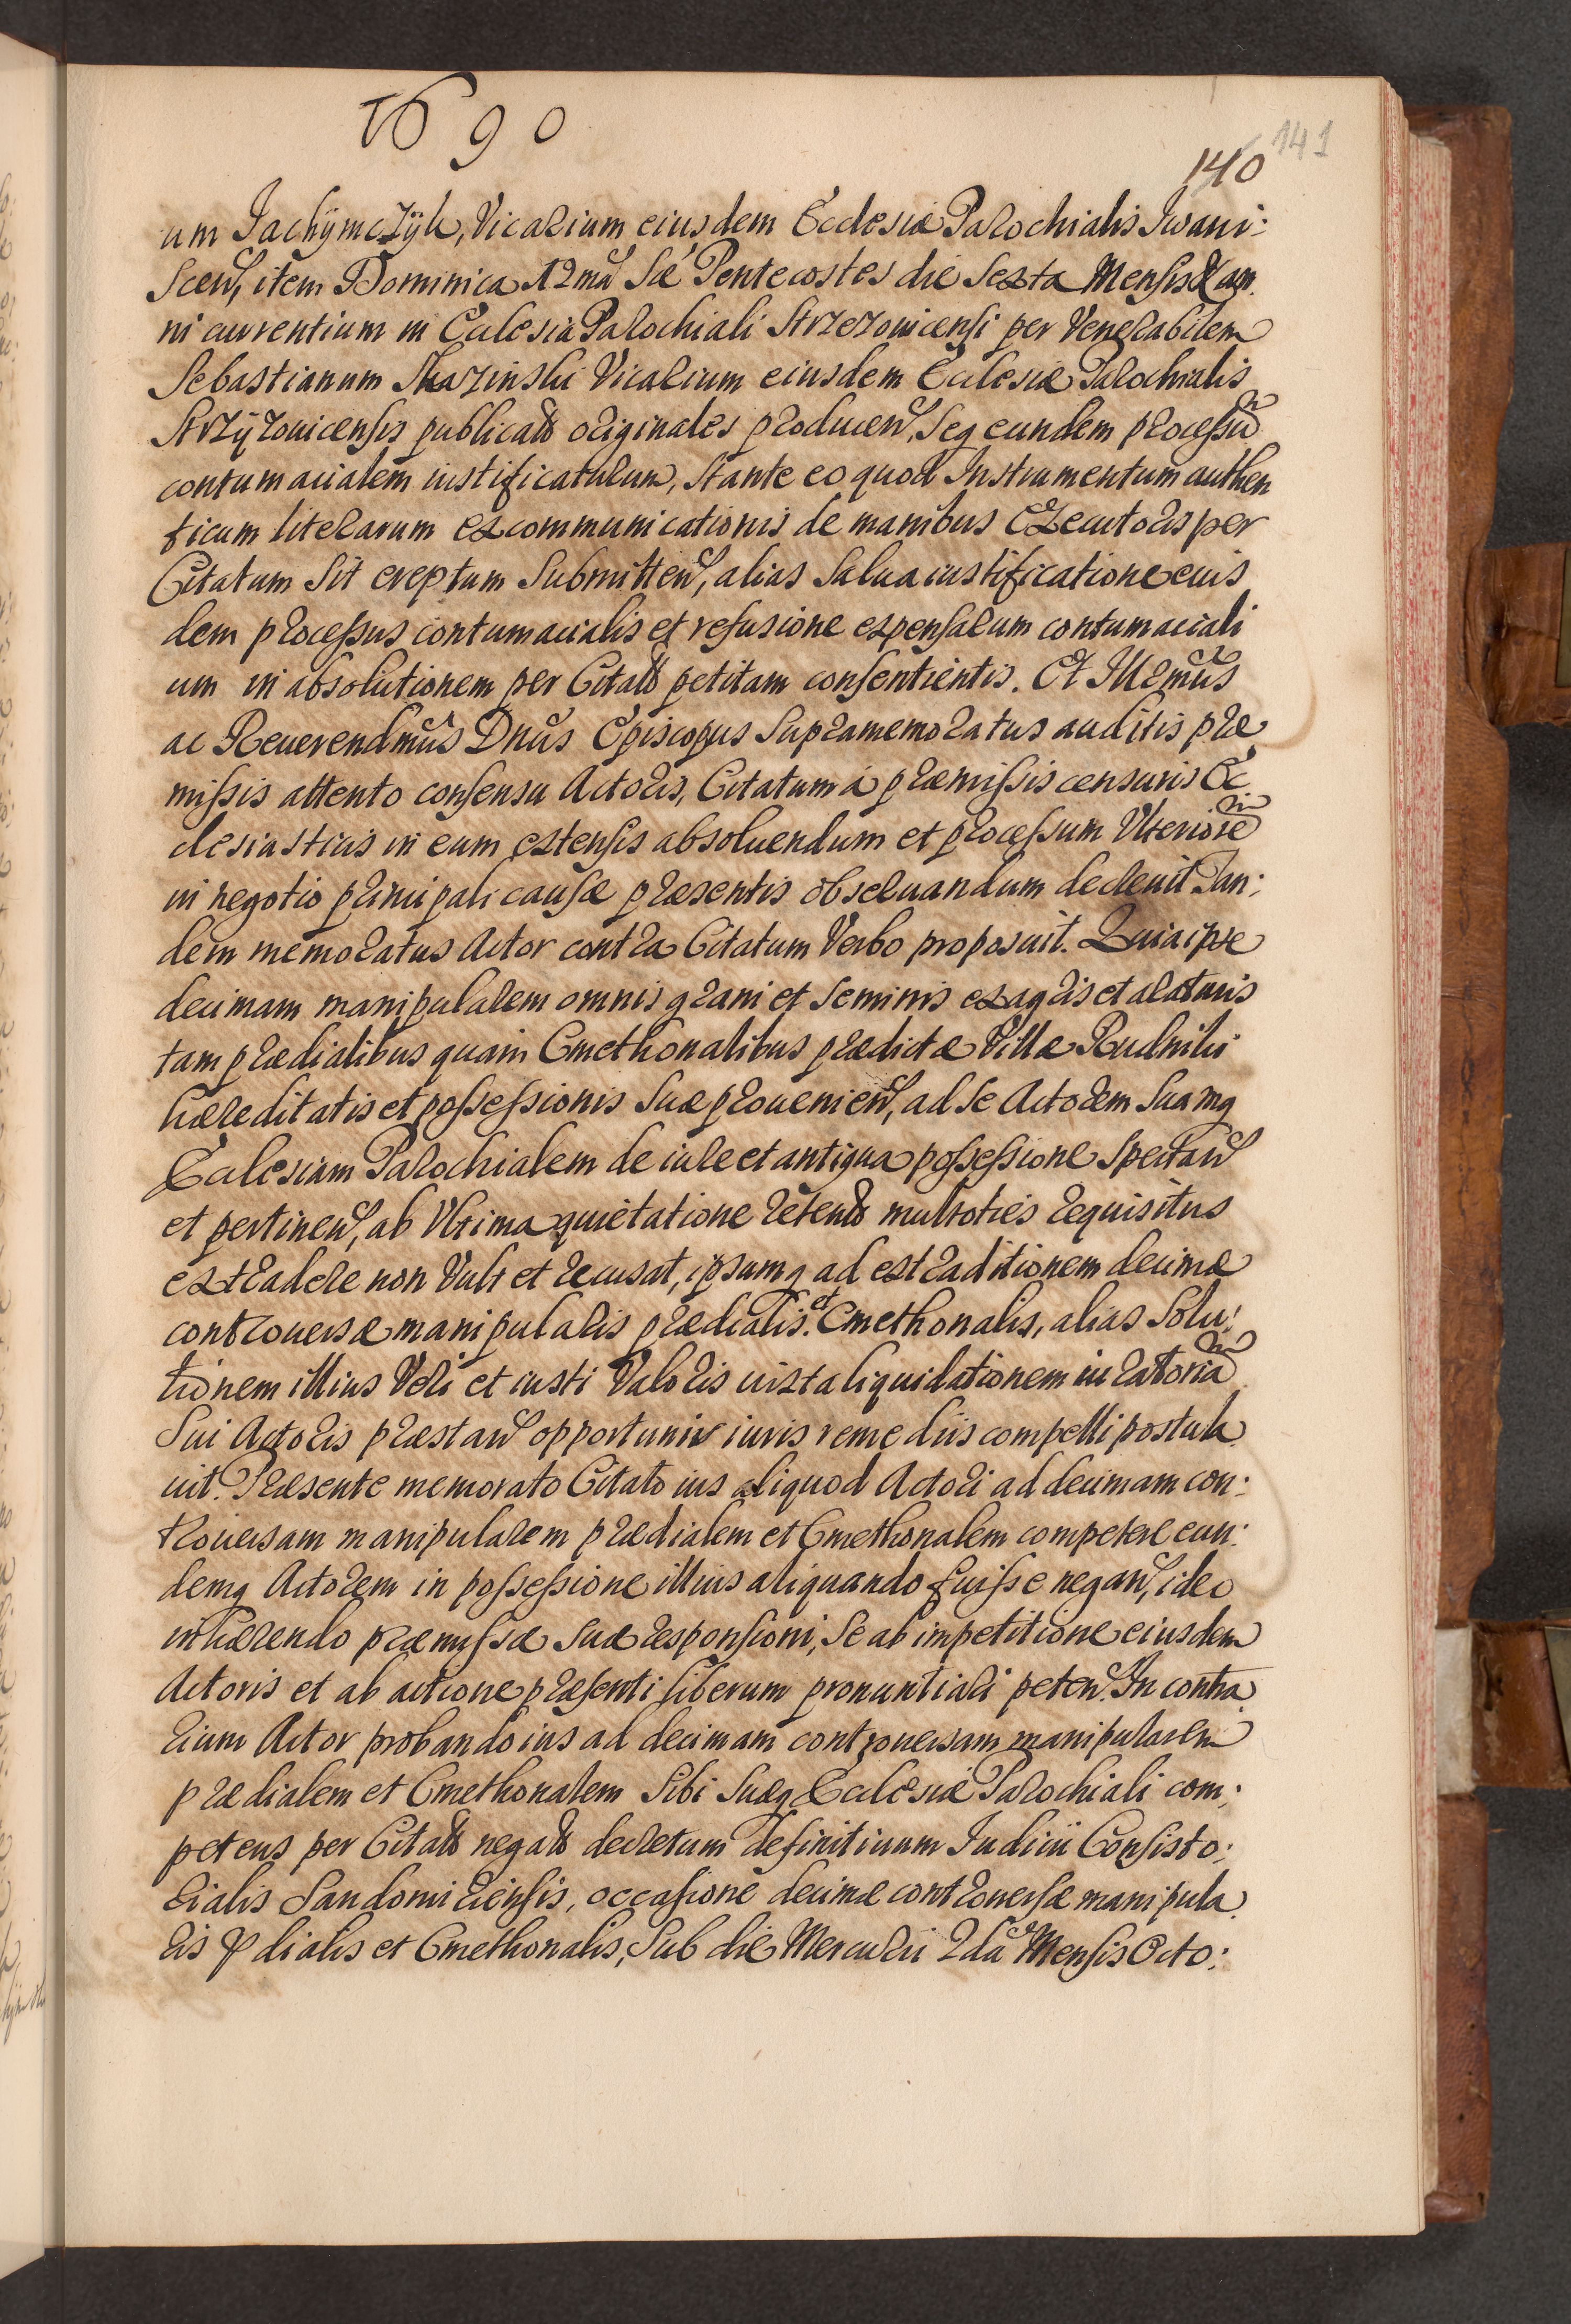 1690
141
140
um Jachÿmczÿk, Vicarium eiusdem Ecclesiæ Parochialis Iwani:
scen, item Dominica 12ma Sæ Pentecostes die Sexta Mensis & an
ni currentium in Ecclesia Parochiali Strzezouicensi per Venerabilem
Sebastianum Skarzinski Vicarium eiusdem Ecclesiæ Parochialis
Strzÿzouicensis publicato originales producen, Seq eundem processu
contumacialem iustificaturum, Stante eo quod Instrumentum authen
ticum literarum excommunicationis de manibus Executoris per
Citatum Sit ereptum Submitten, alias Salua iustificatione eius
dem processus contumacialis et refusione expensarum contumaciali
um in absolutionem per Citato petitam consentientis. Et Illrmus
ac Reuerendmus Dnus Episcopus Supramemoratus auditis præ
missis attento consensu Actoris, Citatum á præmissis censuris Ec
clesiasticis in eum extensis absoluendum et processum Vlteriore
in negotio principali causæ præsentis obseruandum decreuit. Tan:
dem memoratus Actor contra Citatum Verbo proposuit. Quia ipse
decimam manipularem omnis grani et Seminis ex agris et araturis
tam prædialibus quam Cmethonalibus prædictæ Villæ Rudniki
hæreditatis et possessionis Suæ prouenien, ad Se Actorem Suamq
Ecclesiam Parochialem de iure et antiqua possessione Spectan
et pertinen, ab Vltima quietatione retento multoties requisitus
extradere non Vult et recusat, ipsumq ad extraditionem decimæ
controuersæ manipularis prædialis et Cmethonalis, alias Solu:
tionem illius Veri et iusti Valoris iuxta liquidationem iuratoria
Sui Actoris præstan opportunis iuris remediis compelli postula
uit. Præsente memorato Citato ius aliquod Actori ad decimam con:
trouersam manipularem prædialem et Cmethonalem competere eun:
demq Actorem in possessione illius aliquando fuisse negan, ideo
inhærendo præmissæ suæ responsioni, Se ab impetitione eiusdem
Actoris et ab actione præsenti liberum pronuntiari peten. In contra
rium Actor probando ius ad decimam controuersam manipularem
prædialem et Cmethonalem Sibi Suæq Ecclesiæ Parochiali com:
petens per Citato negato decretum definitiuum Iudicii Consisto:
rialis Sandomiriensis, occasione decimæ controuersæ manipula
ris p dialis et Cmethonalis, Sub die Mercurii 2da Mensis Octo: